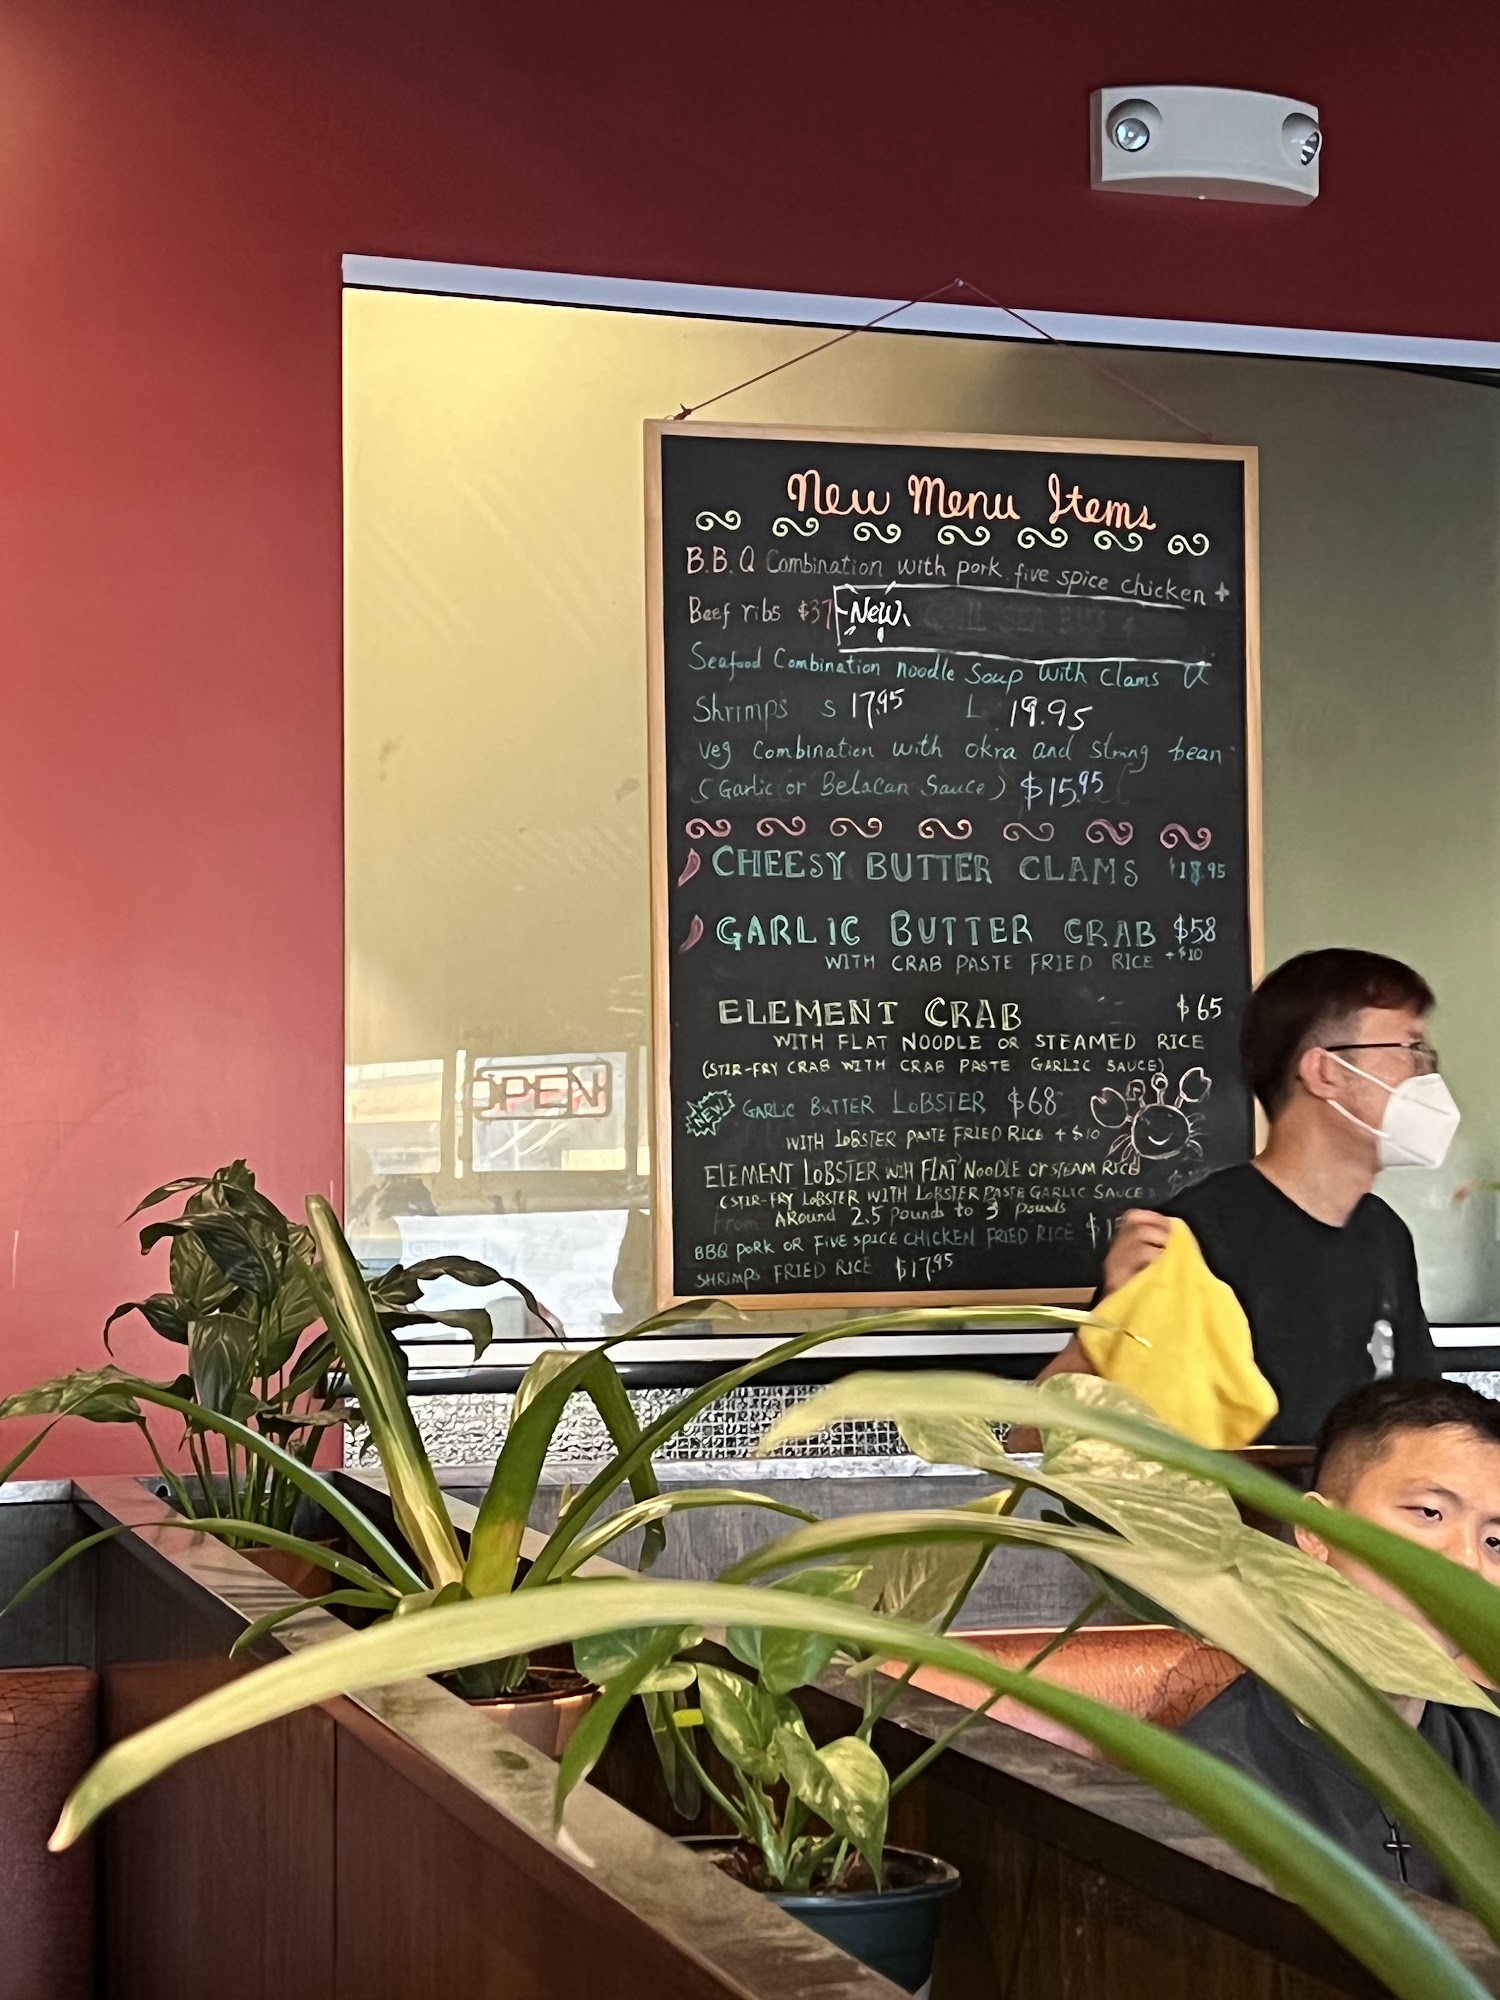 New Menu Items
B.B.Q Combination with pork. five spice chicken +
Beef ribs $37 New
Seafood Combination noodle Soup with clams &
Shrimps S 17.95 L 19.95
Veg Combination with okra and string bean
(Garlic or Belacan Sauce) $15.95
CHEESY BUTTER CLAMS $18.95
GARLIC BUTTER CRAB $58
WITH CRAB PASTE FRIED RICE +$10
ELEMENT CRAB $65
WITH FLAT NOODLE OR STEAMED RICE
(STIR-FRY CRAB WITH CRAB PASTE GARLIC SAUCE)
NEW GARLIC BUTTER LOBSTER $68
WITH LOBSTER PASTE FRIED RICE + $10
ELEMENT LOBSTER WITH FLAT NOODLE OR STEAM RICE
(STIR-FRY LOBSTER WITH LOBSTER PASTE GARLIC SAUCE)
From AROUND 2.5 Pounds to 3 Pounds
BBQ PORK OR FIVE SPICE CHICKEN FRIED RICE
SHRIMPS FRIED RICE $17.95
OPEN